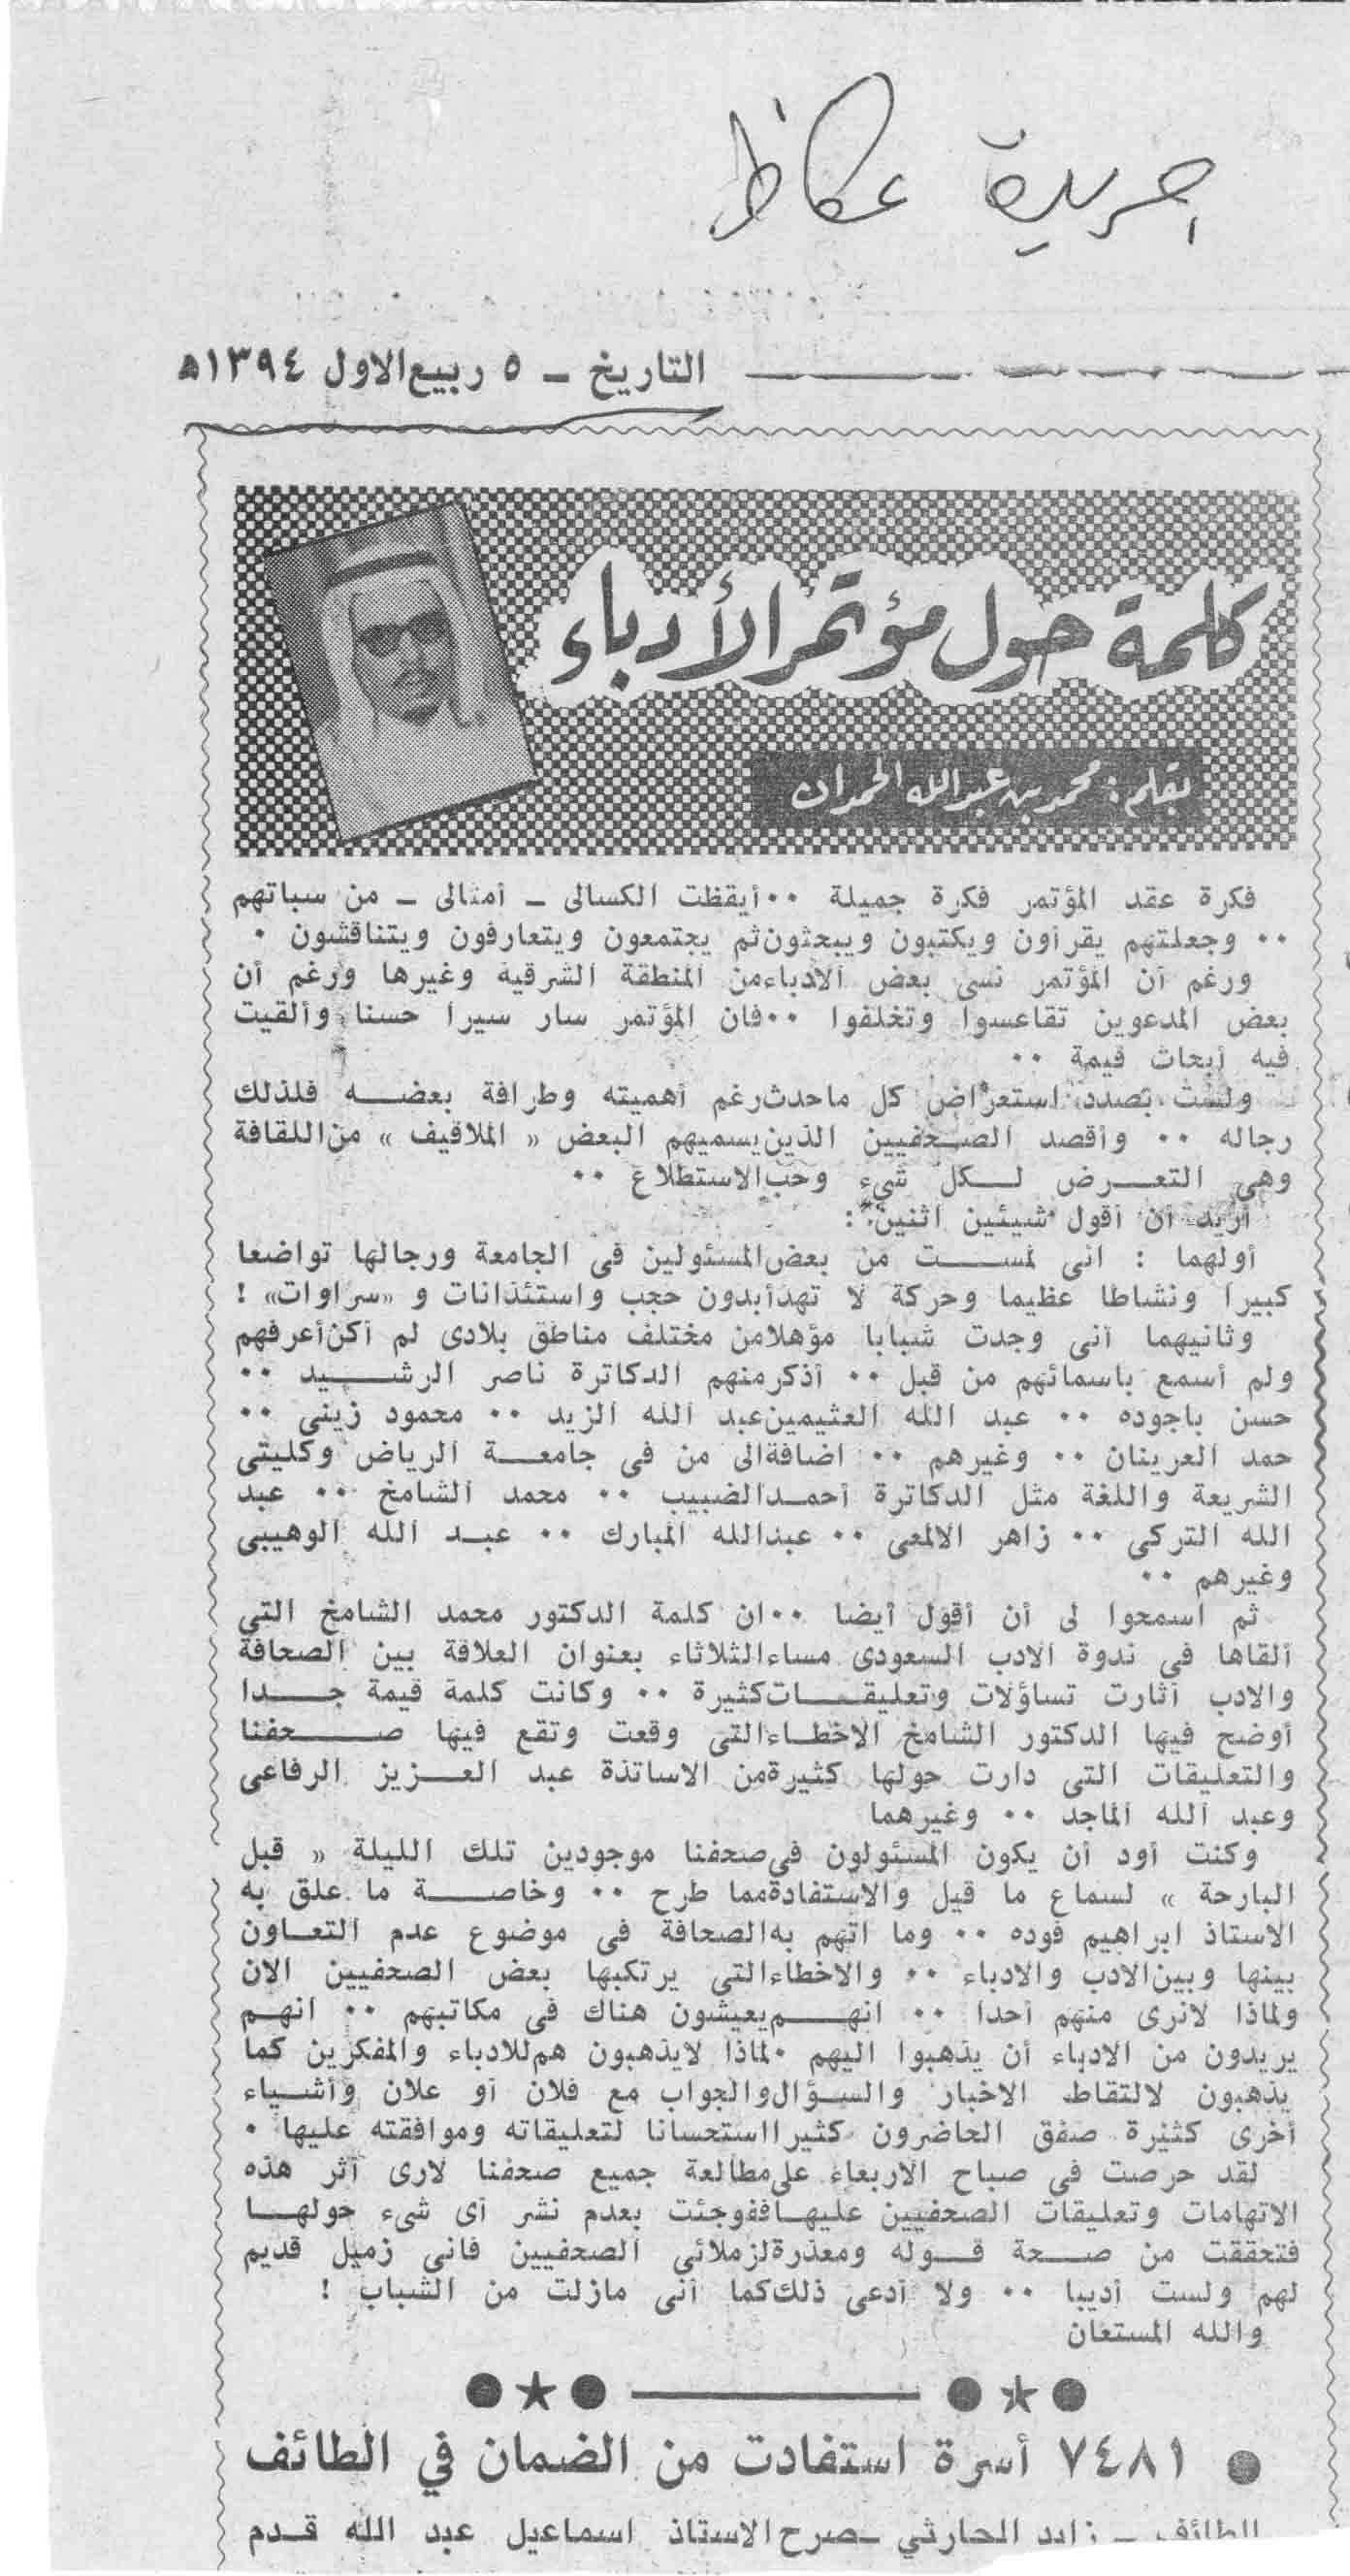 جريدة عكاظ
التاريخ ـ ٥ ربيع الاول ١٣٩٤ه
كلمة حول مؤتمر الأدباء
بقلم : محمد بن عبدالله الحمدان
فكرة عقد المؤتمر فكرة جميلة ٠٠ أيقظت الكسالى ـ أمثالى ـ من سباتهم
٠٠ وجعلتهم يقرأون ويكتبون ويبحثون ثم يجتمعون ويتعارفون ويتناقشون ٠
ورغم أن المؤتمر نسى بعض الادباء من المنطقة الشرقية وغيرها ورغم أن
بعض المدعوين تقاعسوا وتخلفوا ٠٠ فان المؤتمر سار سيرا حسنا وألقيت
فيه أبحاث قيمة ٠٠
ولست بصدد استعراض كل ماحدث رغم أهميته وطرافة بعضه فلذلك
رجاله ٠٠ وأقصد الصحفيين الذين يسميهم البعض « الملاقيف » من اللقافة
وهى التعرض لكل شيء وحب الاستطلاع ٠٠
أريد أن أقول شيئين اثنين :
أولهما : انى لمست من بعض المسئولين فى الجامعة ورجالها تواضعا
كبيرا ونشاطا عظيما وحركة لا تهدأ بدون حجب واستئذانات و «سراوات» !
وثانيهما أنى وجدت شبابا مؤهلا من مختلف مناطق بلادى لم أكن أعرفهم
ولم أسمع باسمائهم من قبل ٠٠ أذكر منهم الدكاترة ناصر الرشيد ٠٠
حسن باجوده ٠٠ عبد الله العثيمين عبد الله الزيد ٠٠ محمود زينى ٠٠
حمد العرينان ٠٠ وغيرهم ٠٠ اضافة الى من فى جامعة الرياض وكليتى
الشريعة واللغة مثل الدكاترة أحمد الضبيب ٠٠ محمد الشامخ ٠٠ عبد
الله التركى ٠٠ زاهر الالمعى ٠٠ عبدالله المبارك ٠٠ عبد الله الوهيبى
وغيرهم ٠٠
ثم اسمحوا لى أن أقول أيضا ٠٠ ان كلمة الدكتور محمد الشامخ التى
ألقاها فى ندوة الادب السعودى مساء الثلاثاء بعنوان العلاقة بين الصحافة
والادب أثارت تساؤلات وتعليقات كثيرة ٠٠ وكانت كلمة قيمة جدا
أوضح فيها الدكتور الشامخ الاخطاء التى وقعت وتقع فيها صحفنا
والتعليقات التى دارت حولها كثيرة من الاساتذة عبد العزيز الرفاعى
وعبد الله الماجد ٠٠ وغيرهما
وكنت أود أن يكون المسئولون فى صحفنا موجودين تلك الليلة « قبل
البارحة » لسماع ما قيل والاستفادة مما طرح ٠٠ وخاصة ما علق به
الاستاذ ابراهيم فوده ٠٠ وما اتهم به الصحافة فى موضوع عدم التعاون
بينها وبين الادب والادباء ٠٠ والاخطاء التى يرتكبها بعض الصحفيين الان
ولماذا لانرى منهم أحدا ٠٠ انهم يعيشون هناك فى مكاتبهم ٠٠ انهم
يريدون من الادباء أن يذهبوا اليهم ٠ لماذا لايذهبون هم للادباء والمفكرين كما
يذهبون لالتقاط الاخبار والسؤال والجواب مع فلان أو علان وأشياء
أخرى كثيرة صفق الحاضرون كثيرا استحسانا لتعليقاته وموافقته عليها ٠
لقد حرصت فى صباح الاربعاء على مطالعة جميع صحفنا لارى أثر هذه
الاتهامات وتعليقات الصحفيين عليها ففوجئت بعدم نشر أى شىء حولها
فتحققت من صحة قوله ومعذرة لزملائي الصحفيين فانى زميل قديم
لهم ولست أديبا ٠٠ ولا أدعى ذلك كما أنى مازلت من الشباب !
والله المستعان
● ٧٤٨١ أسرة استفادت من الضمان في الطائف
الطائف ـ زايد الحارثي ـ صرح الاستاذ اسماعيل عبد الله قدم